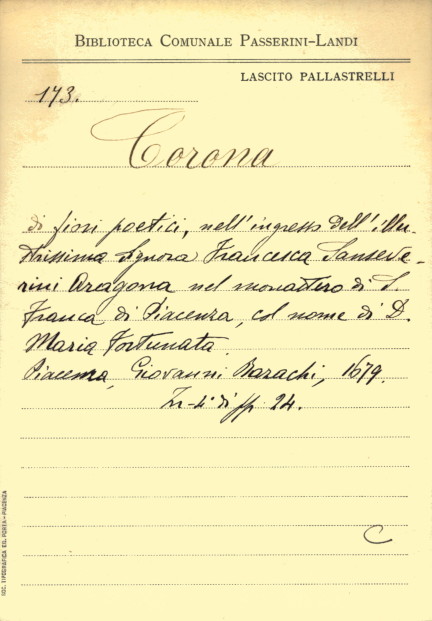 BIBLIOTECA COMUNALE PASSERINI-LANDI
LASCITO PALLASTRELLI
173.
Corona
di fiori poetici, nell'ingresso dell'illu-
strissima Signora Francesca Sanseve-
rini Aragona nel monastero di S.
Franca di Piacenza, col nome di D.
Maria Fortunata.
Piacenza, Giovanni Bazachi, 1679.
In-4° di pp. 24.
C
SOC. TIPOGRAFICA ED. PORTA - PIACENZA